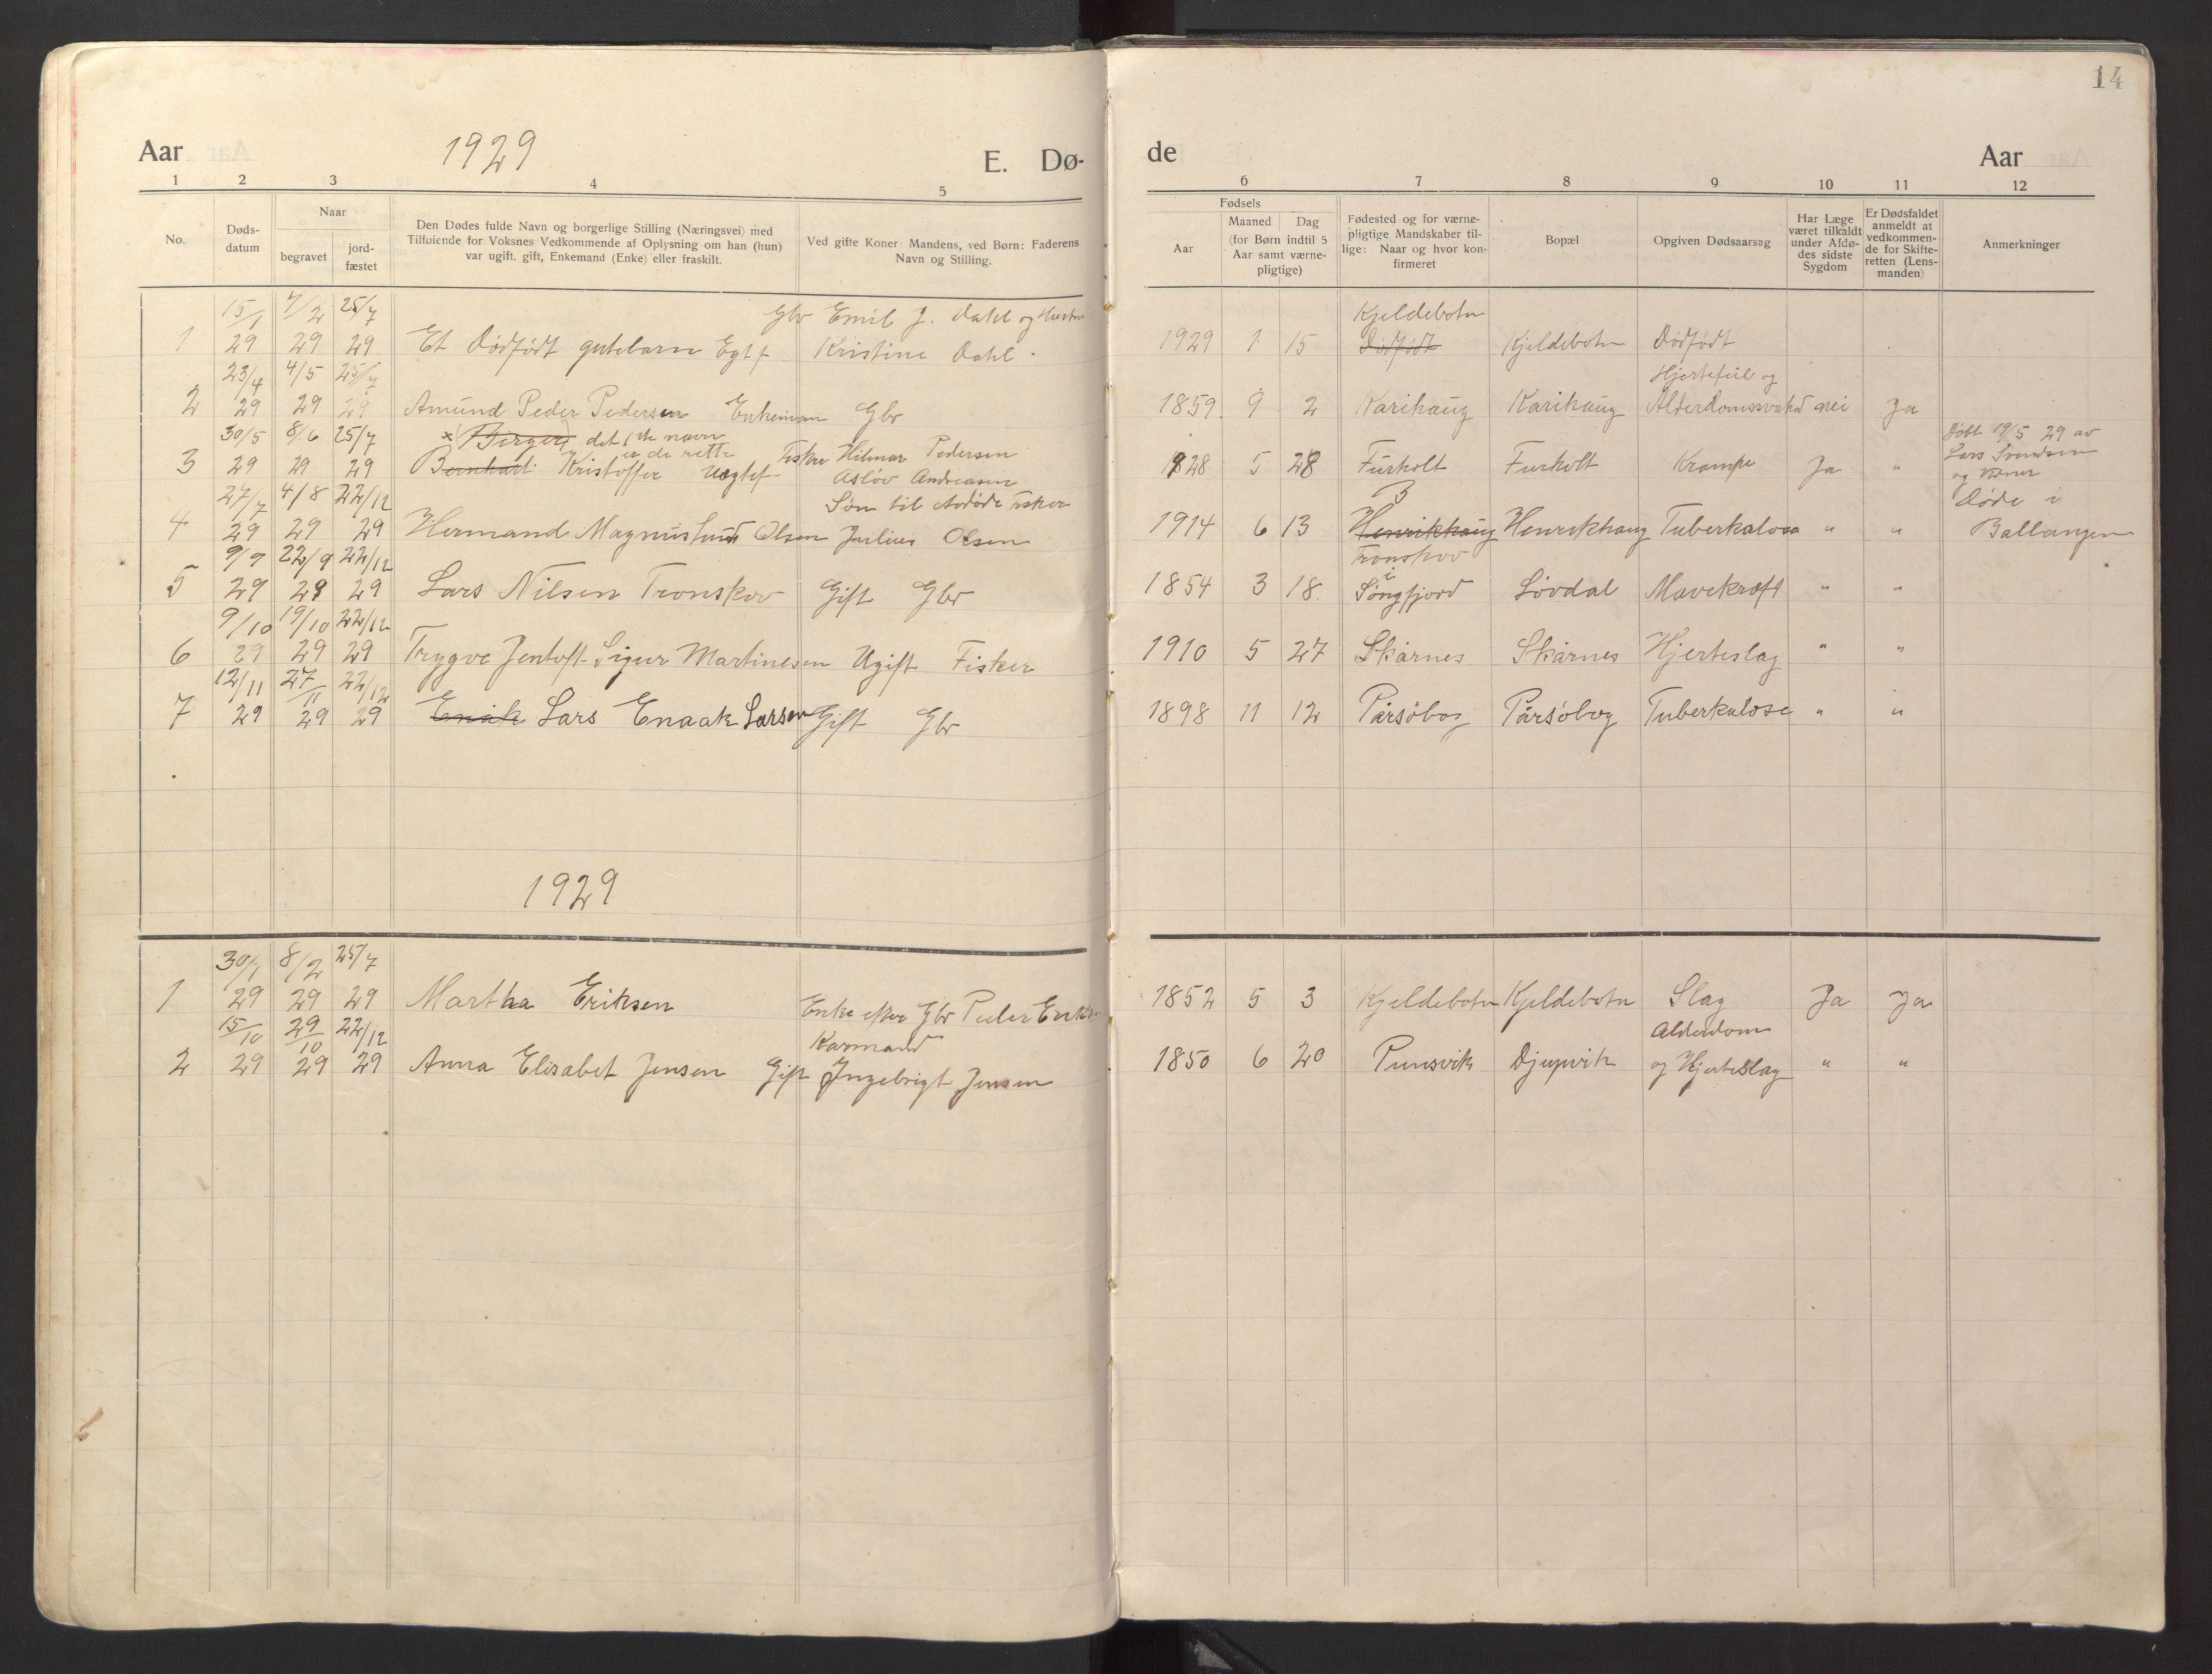 14
Aar 1929 E. Dø- de Aar
1 2 3 4 5 6 7 8 9 10 11 12
No.
Døds-
datum
Naar
begravet
jord-
fæstet
Den Dødes fulde Navn og borgerlige Stilling (Næringsvei) med
Tilføiende for Voksnes Vedkommende af Oplysning om han (hun)
var ugift, gift, Enkemand (Enke) eller fraskilt.
Ved gifte Koner: Mandens, ved Børn: Faderens
Navn og Stilling.
Fødsels
Aar
Maaned Dag
(for Børn indtil 5
Aar samt værne-
pligtige)
Fødested og for værne-
pligtige Mandskaber til-
lige: Naar og hvor kon-
firmeret
Bopæl
Opgiven Dødsaarsag
Har Læge
været tilkaldt
under Afdø-
des sidste
Sygdom
Er Dødsfaldet
anmeldt at
vedkommen-
de for Skifte-
retten (Lens-
manden)
Anmerkninger
15/1 7/2 25/7 Gbr Emil J. Dahl og Hustru Kjeldebotn
1 29 29 29 Et Dødfødt gutebarn Egtf Kristine Dahl. 1929 1 15 Dødfødt Kjeldebotn Dødfødt
23/4 4/5 25/7 Hjertefeil og
2 29 29 29 Amund Peder Pedersen Enkeman Gbr 1859 9 2 Karihaug Karihaug nei Ja
30/5 8/6 25/7 x Birger det navn Døbt 19/5 29 av
er de rette Fisker Hilmar Pedersen Lars Svendsen
3 29 29 29 Bernhart Kristoffer Uegtef Asløv Andreasen 928 5 28 Furholt Furholt Krampe Ja " og
27/7 4/8 22/12 Søn til Avdøde Fisker B Døde i
4 29 29 29 Hermand Magnus Olsen Julius Olsen 1914 6 13 Henrikhaug Henrikhaug Tuberkalose " " Ballangen
9/9 22/9 22/12 Tronskov
i
5 29 29 29 Lars Nilsen Tronskov Gift Gbr 1854 3 18 Søngfjord Løvdal Mavekræft " "
9/10 19/10 22/12
6 29 29 29 Trygve Jentoft Sigur Martinesen Ugift Fisker 1910 5 27 Skarnes Skarnes Hjerteslag " "
12/11 27/11 22/12
7 29 29 29 Enak Lars Enaak Larsen Gift Gbr 1898 11 12 Pårsøbog Pårsøbog Tuberkulose " "
1929
30/1 8/2 25/7
1 29 29 29 Martha Eriksen Enke efter Gbr Peder 1852 5 3 Kjeldebotn Kjeldebotn Slag Ja Ja
15/10 29/10 22/12 Karmand Alderdom
2 29 29 29 Anna Elisabet Jensen Gift Ingebrigt Jensen 1850 6 20 Punsvik Djupvik og Hjerteslag " "